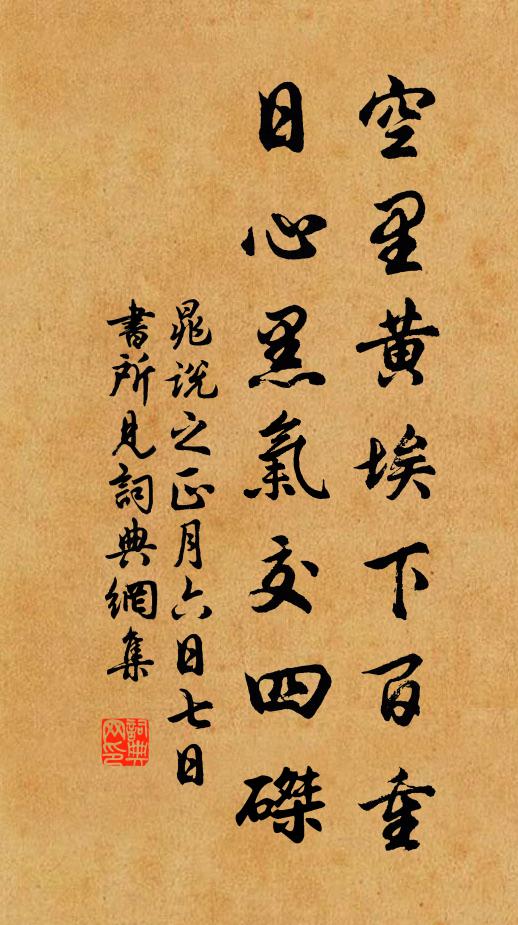 空里黄埃下百重
日心黑氣交四磔
晁說之正月六日七日
書所見詞典網集
詞典网印